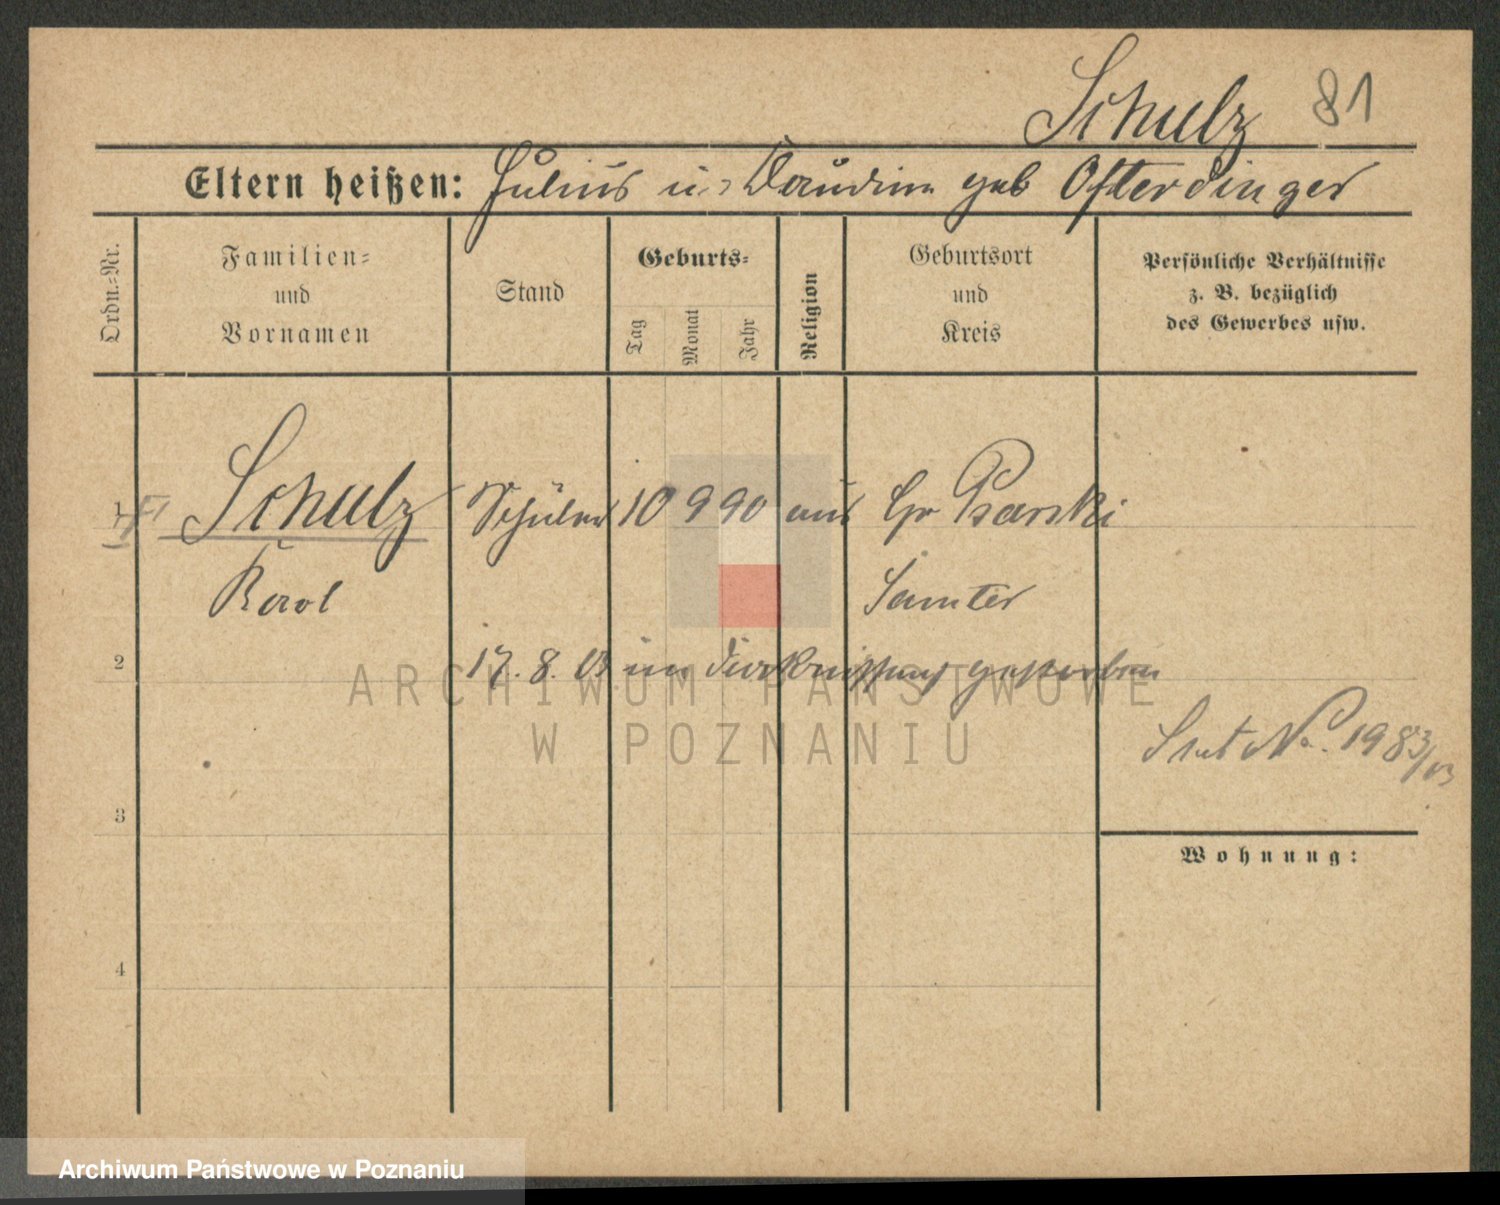 Schulz 81
Eltern heißen: Julius u. Claudine geb Ofterdinger
Ordn.-Nr.
Familien- und Vornamen
Stand
Geburts-
Tag
Monat
Jahr
Religion
Geburtsort und Kreis
Persönliche Verhältnisse z. B. bezüglich des Gewerbes usw.
1 Schulz Schüler 10 9 90 Gr Psarski
Karol Samter
2 17. 8. 03 im gestorben
No. 1983/03
3
Wohnung:
4
ARCHIWUM PAŃSTWOWE
W POZNANIU
Archiwum Państwowe w Poznaniu